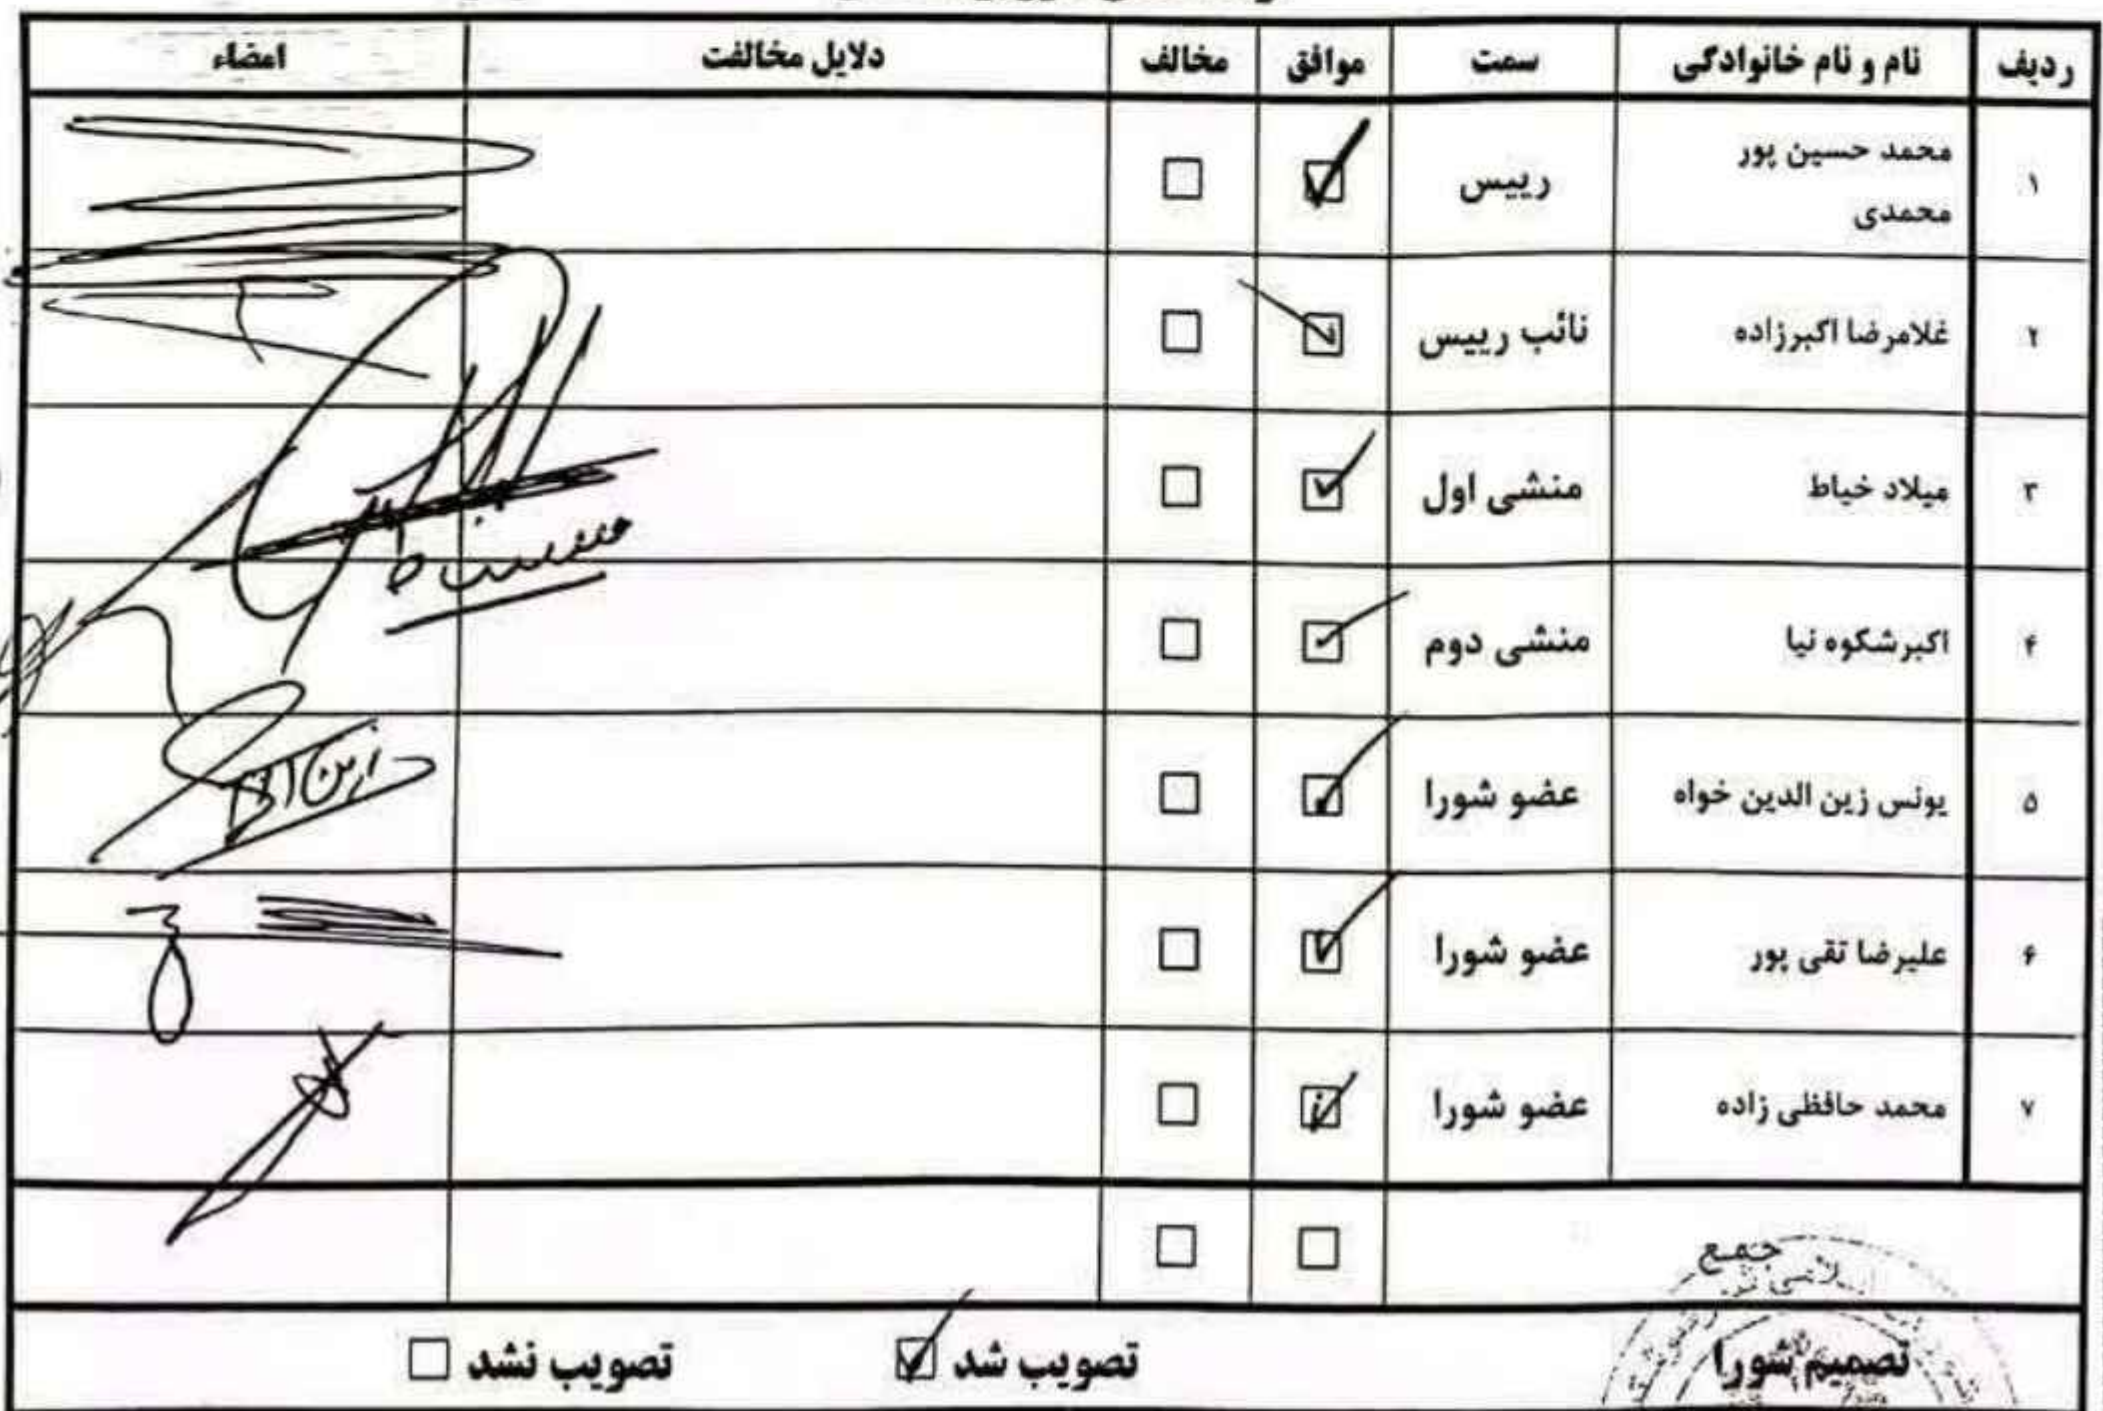 ردیف نام و نام خانوادگی سمت موافق مخالف دلایل مخالفت امضاء
۱ محمد حسین پور محمدی رییس
۲ غلامرضا اکبرزاده نائب رییس
۳ میلاد خیاط منشی اول
۴ اکبرشکوه نیا منشی دوم
۵ یونس زین الدین خواه عضو شورا
۶ علیرضا تقی پور عضو شورا
۷ محمد حافظی زاده عضو شورا
جمع
تصمیم شورا تصویب شد تصویب نشد